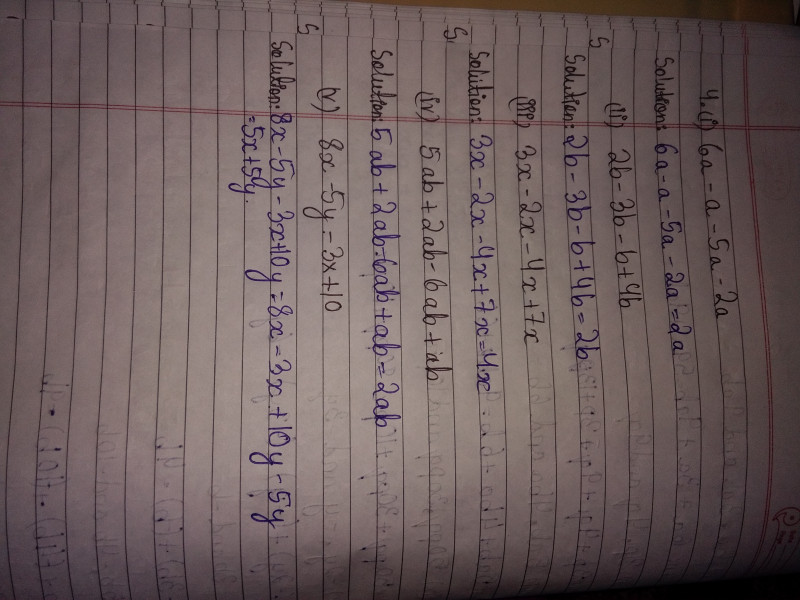 4. (i) 6a - a - 5a - 2a
Solution: 6a - a - 5a - 2a = 2a
(ii) 2b - 3b - b + 4b
Solution: 2b - 3b - b + 4b = 2b
(iii) 3x - 2x - 4x + 7x
Solution: 3x - 2x - 4x + 7x = 4x
(iv) 5ab + 2ab - 6ab + ab
Solution: 5ab + 2ab - 6ab + ab = 2ab
(v) 8x - 5y - 3x + 10
Solution: 8x - 5y - 3x + 10y = 8x - 3x + 10y - 5y
= 5x + 5y.